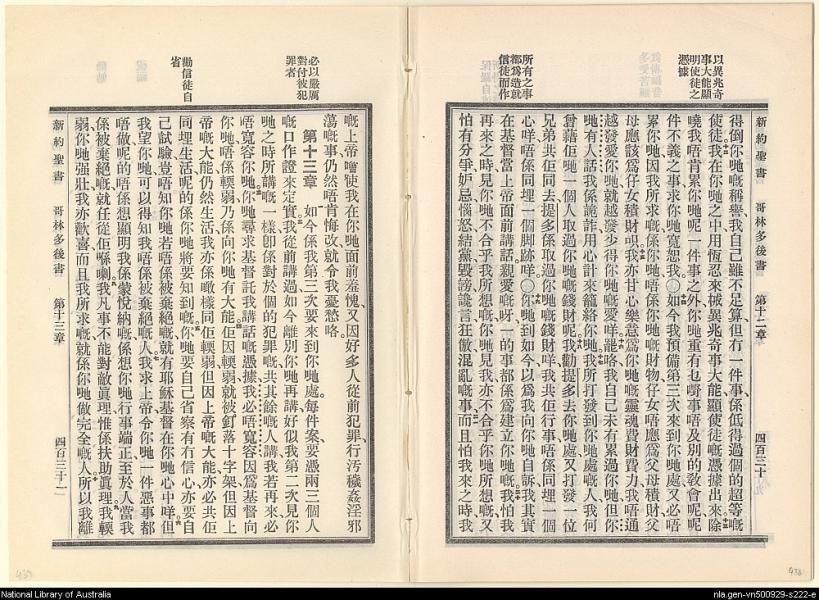 以異兆奇
事大能顯
明使徒之
憑據
所有之事
都爲造就
信徒而作
新約聖書 哥林多後書 第十二章 四百三十
得倒你哋嘅稱譽我自己雖不足算但有一件事係低得過個的超等嘅
使徒我在你哋之中用恆忍來械異兆奇事大能顯使徒嘅憑據出來除
曉我唔肯累你哋呢一件事之外你哋重有乜嘢事唔及別的敎會呢呢
件不義之事求你哋寬恕我〇如今我預備第三次來到你哋處又必唔
累你哋因我所求嘅係你哋唔係你哋嘅財物仔女唔應爲父母積財父
母應該爲仔女積財呮我亦甘心樂意爲你哋嘅靈魂費財費力我唔通
越發愛你哋就越發少得你哋嘅愛咩罷咯我自己未有累過你哋但你
哋有人話我係詭詐用心計來籠絡你哋我所打發到你哋處嘅人我何
曾藉佢哋一個人取過你哋嘅錢財呢我勸提多去你哋處又打發一位
兄弟共佢同去提多係取過你哋嘅錢財咩我共佢行事唔係同埋一個
心咩唔係同埋一個脚跡咩〇你哋到如今以爲我向你哋自訴我其實
在基督當上帝面前講話親愛嘅呀一的事都係爲建立你哋嘅我怕我
再來之時見你哋不合乎我所想嘅你哋見我亦不合乎你哋所想嘅又
怕有分爭妒忌惱怒結黨毀謗讒言狂傲混亂嘅事而且怕我來之時我
必以嚴厲
對付彼犯
罪者
勸信徒自
省
嘅上帝噲使我在你哋面前羞愧又因好多人從前犯罪行汚穢姦淫邪
蕩嘅事仍然唔肯悔改就令我憂愁咯
第十三章 如今係我第三次要來到你哋處每件案要憑兩三個人
嘅口作證來定實我從前講過如今離別你哋再講好似我第二次見你
哋之時所講嘅一樣卽係對於個的犯罪嘅共其餘嘅人講我若再來必
唔寬容你哋你哋尋求基督託我講話嘅憑據我必唔寬容因爲基督向
你哋唔係輭弱乃係向你哋有大能佢因輭弱就被釘落十字架但因上
帝嘅大能仍然生活我亦係噉樣同佢輭弱但因上帝嘅大能亦必共佢
同埋生活呢的係你哋將要知到嘅你哋要自己省察有冇信心亦要自
己試驗豈唔知你哋若唔係被棄絕嘅就有耶穌基督在你哋心中咩但
我望你哋可以得知我唔係被棄絕嘅人我求上帝令你哋一件惡事都
唔做呢的唔係想顯明我係蒙悅納嘅係想你哋行事端正至於人當我
係被棄絕嘅就任從佢喺喇我凡事不能對敵眞理惟係扶助眞理我輭
弱你哋強壯我亦歡喜而且我所求嘅就係你哋做完全嘅人所以我離
新約聖書 哥林多後書 第十三章 四百三十一
439
438
National Library of Australia
nla.gen-vn500929-s222-e